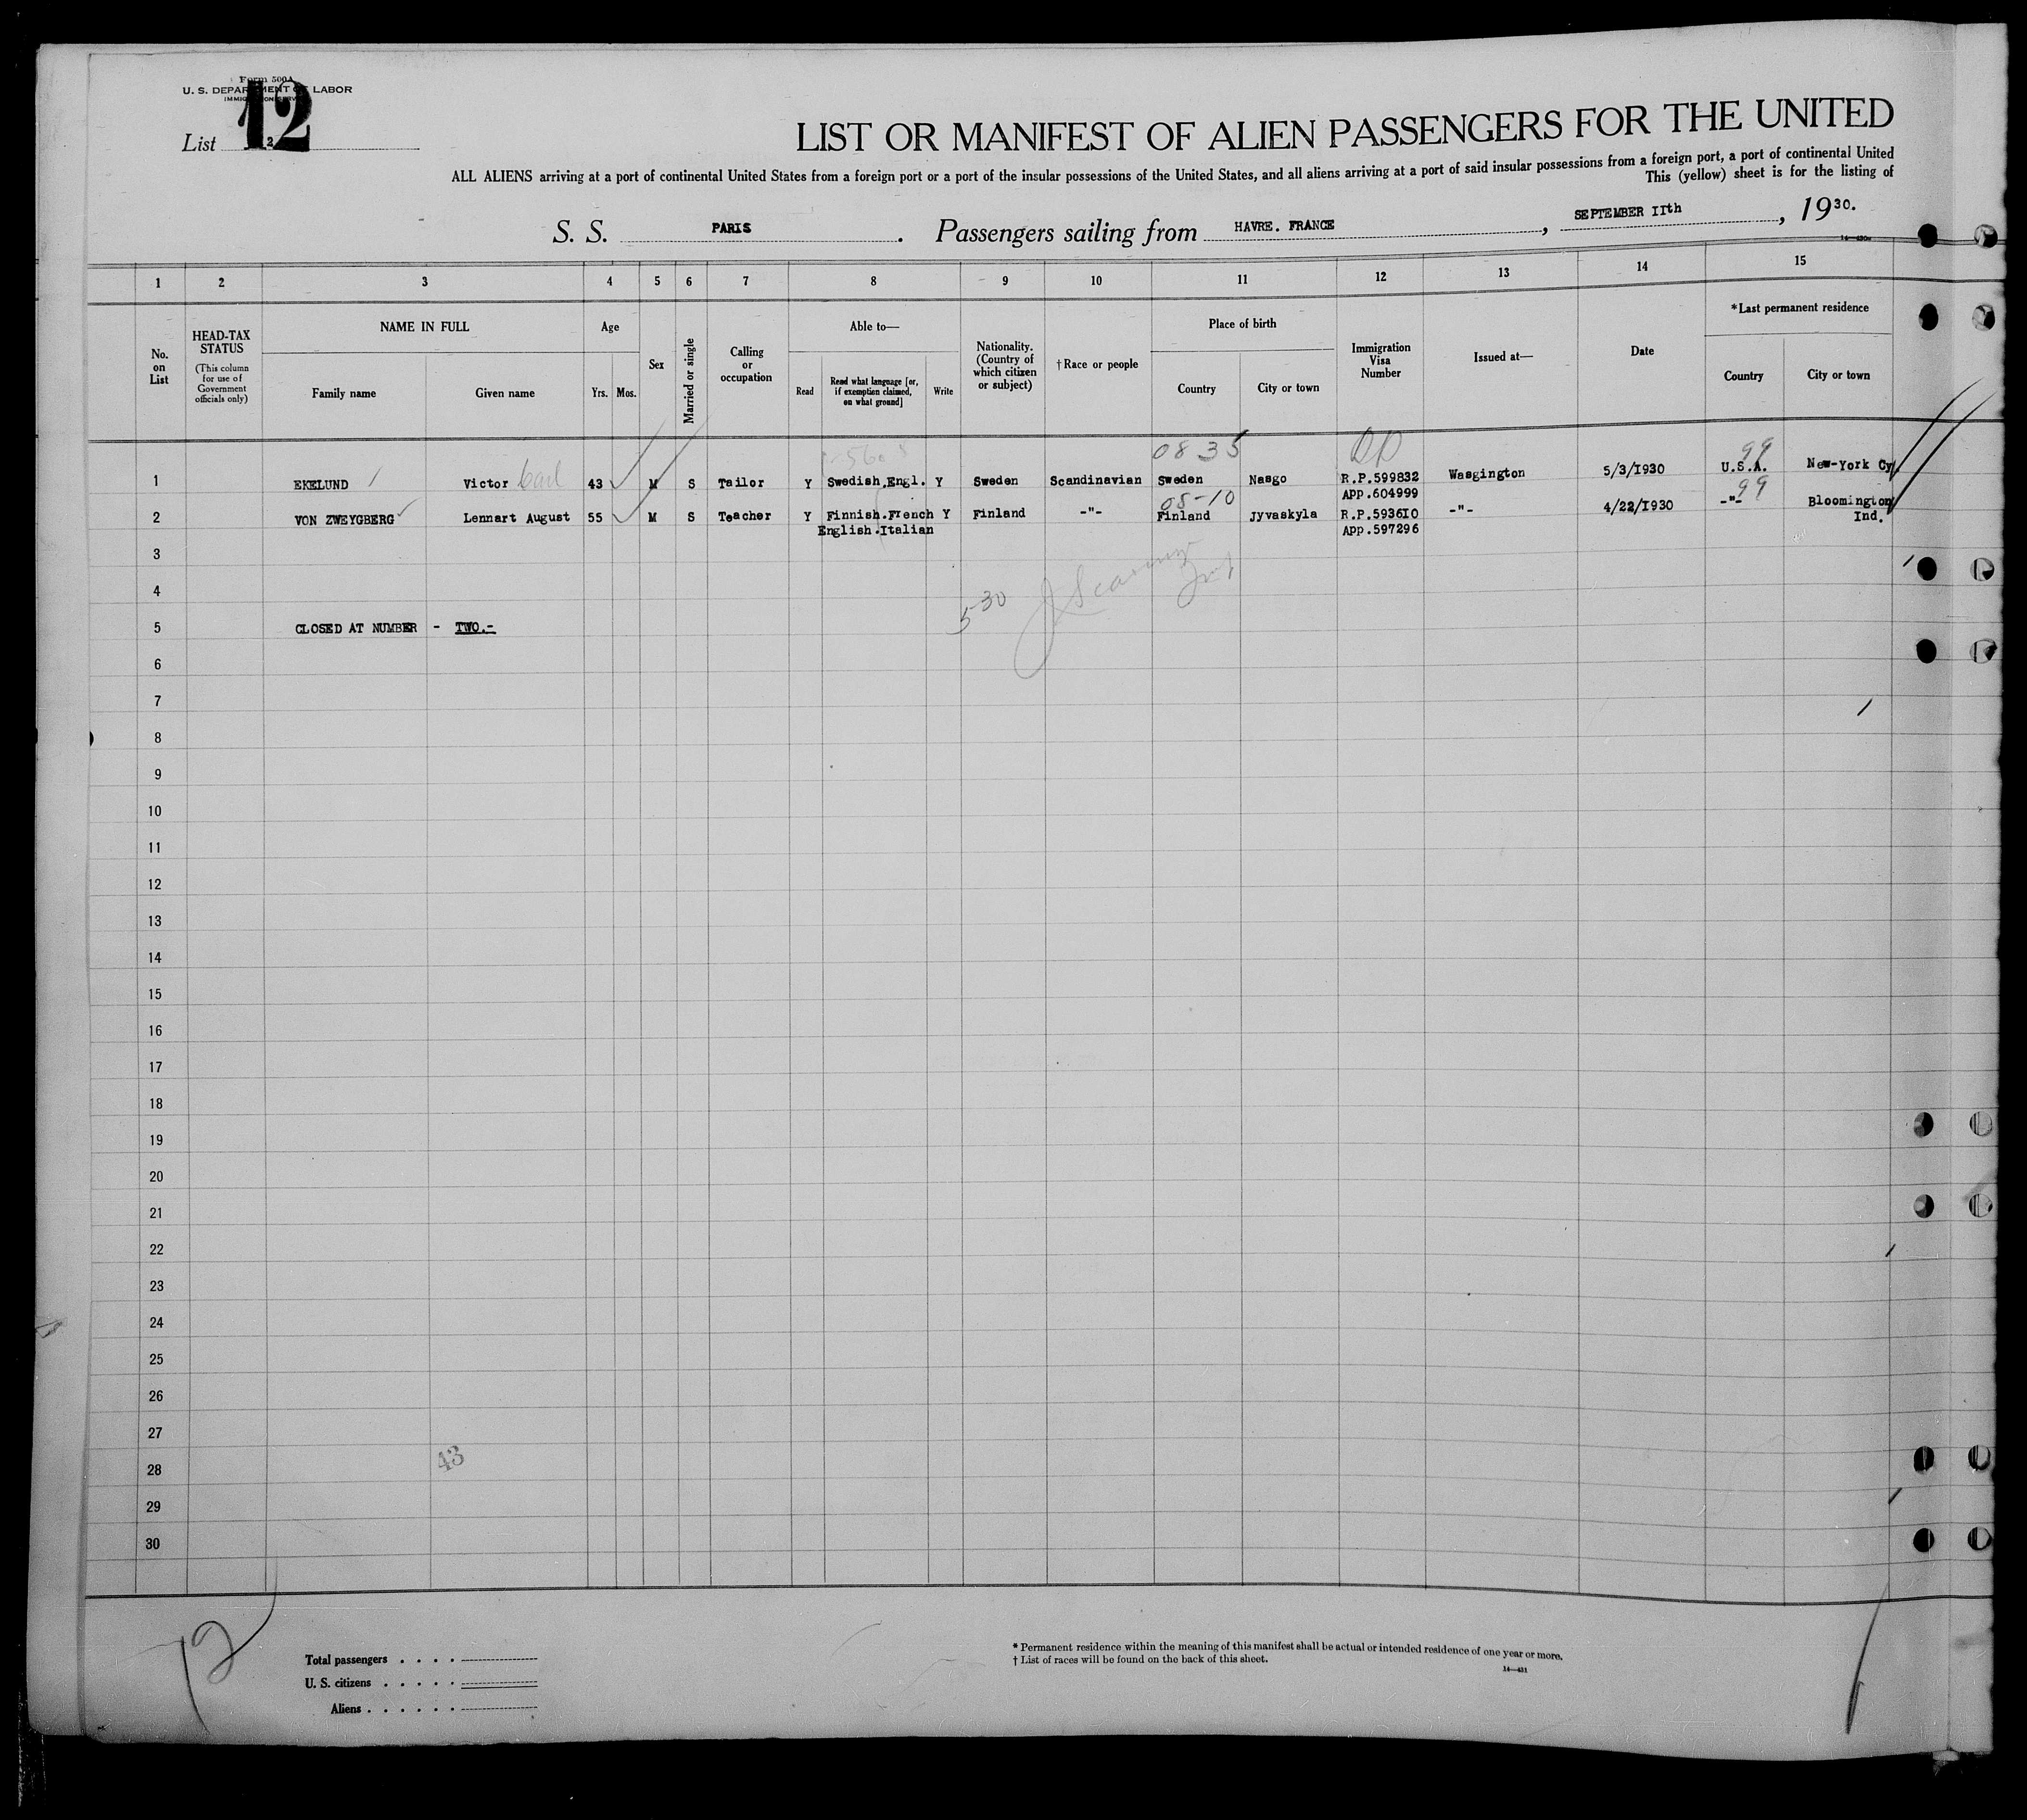 Form 500A
U. S. DEPARTMENT OF LABOR
List 12
LIST OR MANIFEST OF ALIEN PASSENGERS FOR THE UNITED
ALL ALIENS arriving at a port of continental United States from a foreign port or a port of the insular possessions of the United States, and all aliens arriving at a port of said insular possessions from a foreign port, a port of continental United
This (yellow) sheet is for the listing of
S. S. PARIS. Passengers sailing from HAVRE. FRANCE, SEPTEMBER IIth, 1930.
1 2 3 4 5 6 7 8 9 10 11 12 13 14 15
No. on List
HEAD-TAX STATUS
(This column for use of Government officials only)
NAME IN FULL
Family name Given name
Age
Yrs. Mos.
Sex
Married or single
Calling or occupation
Able to—
Read
Read what language [or, if exemption claimed, on what ground]
Write
Nationality. (Country of which citizen or subject)
†Race or people
Place of birth
Country City or town
Immigration Visa Number
Issued at—
Date
*Last permanent residence
Country City or town
08 35 99
1 EKELUND Victor Carl 43 M S Tailor Y Swedish.Engl. Y Sweden Scandinavian Sweden Nasgo R.P.599832 Wasgington 5/3/I930 U.S.A. New-York Cy
APP.604999
08-10 99
2 VON ZWEYGBERG Lennart August 55 M S Teacher Y Finnish.French Y Finland -"- Finland Jyvaskyla R.P.5936IO -"- 4/22/I930 -"- Bloomington
English.Italian APP.597296 Ind.
3
4
5 30
5 CLOSED AT NUMBER - TWO.-
6
7
8
9
10
11
12
13
14
15
16
17
18
19
20
21
22
23
24
25
26
27
43
28
29
30
12
Total passengers
U. S. citizens
Aliens
* Permanent residence within the meaning of this manifest shall be actual or intended residence of one year or more.
† List of races will be found on the back of this sheet.
14—431